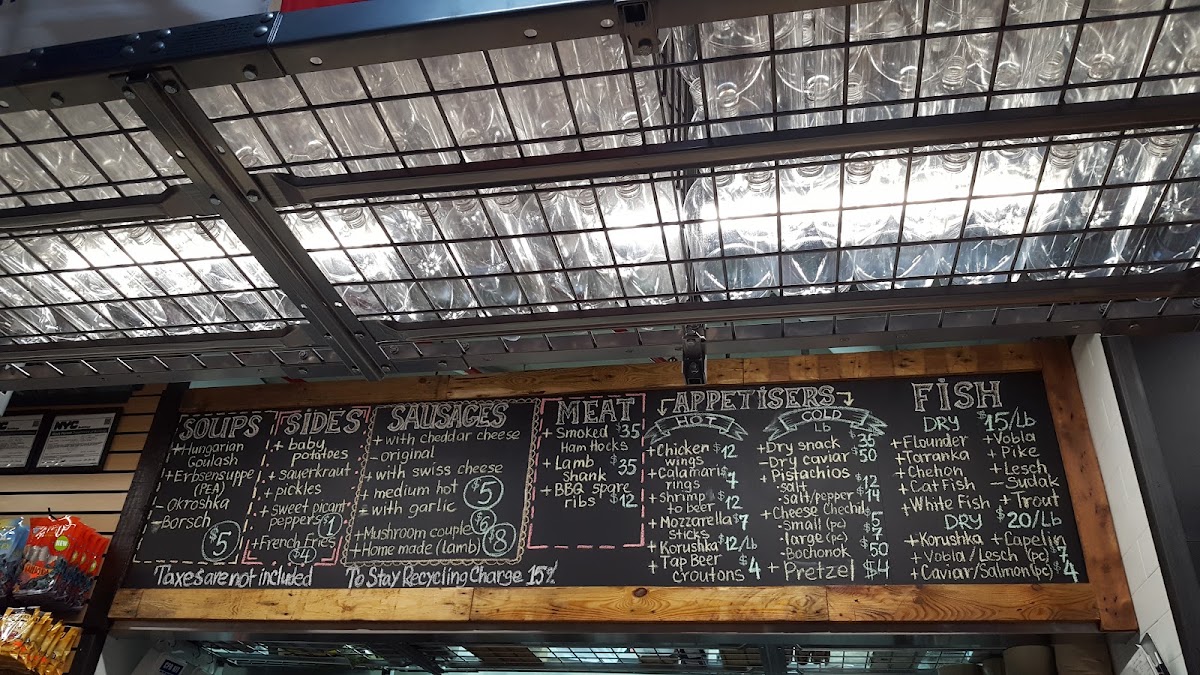 SOUPS
+ Hungarian
Goulash
+ Erbsensuppe
(PEA)
- Okroshka
- Borsch
$5
SIDES
+ baby
potatoes
+ sauerkraut
+ pickles
+ sweet picant
peppers $1
+ French Fries
$4
SAUSAGES
+ with cheddar cheese
- original
+ with swiss cheese
+ medium hot
+ with garlic
$5
+ Mushroom couple $6
+ Home made (lamb) $8
MEAT
+ Smoked $35
Ham Hocks
+ Lamb $35
shank
+ BBQ spare
ribs $12
APPETISERS
HOT
+ Chicken $12
wings
+ Calamari $7
rings
+ shrimp $12
to beer
+ Mozzarella $7
Sticks
+ Korushka $12/Lb
+ Tap Beer
croutons $4
COLD
LB
+ Dry snack $35
- Dry caviar $50
+ Pistachios
- salt $12
- salt/pepper $14
+ Cheese Chechil
- small (pc) $5
- large (pc) $7
- Bochonok $50
+ Pretzel $4
FISH
DRY $15/Lb
+ Flounder
+ Taranka
+ Chehon
+ Cat Fish
+ White Fish
+ Vobla
+ Pike
+ Lesch
- Sudak
+ Trout
DRY $20/Lb
+ Korushka + Capelin
+ Vobla/Lesch (pc) $7
+ Caviar/Salmon (pc) $4
Taxes are not included To Stay Recycling Charge 15%
NYC
NYC